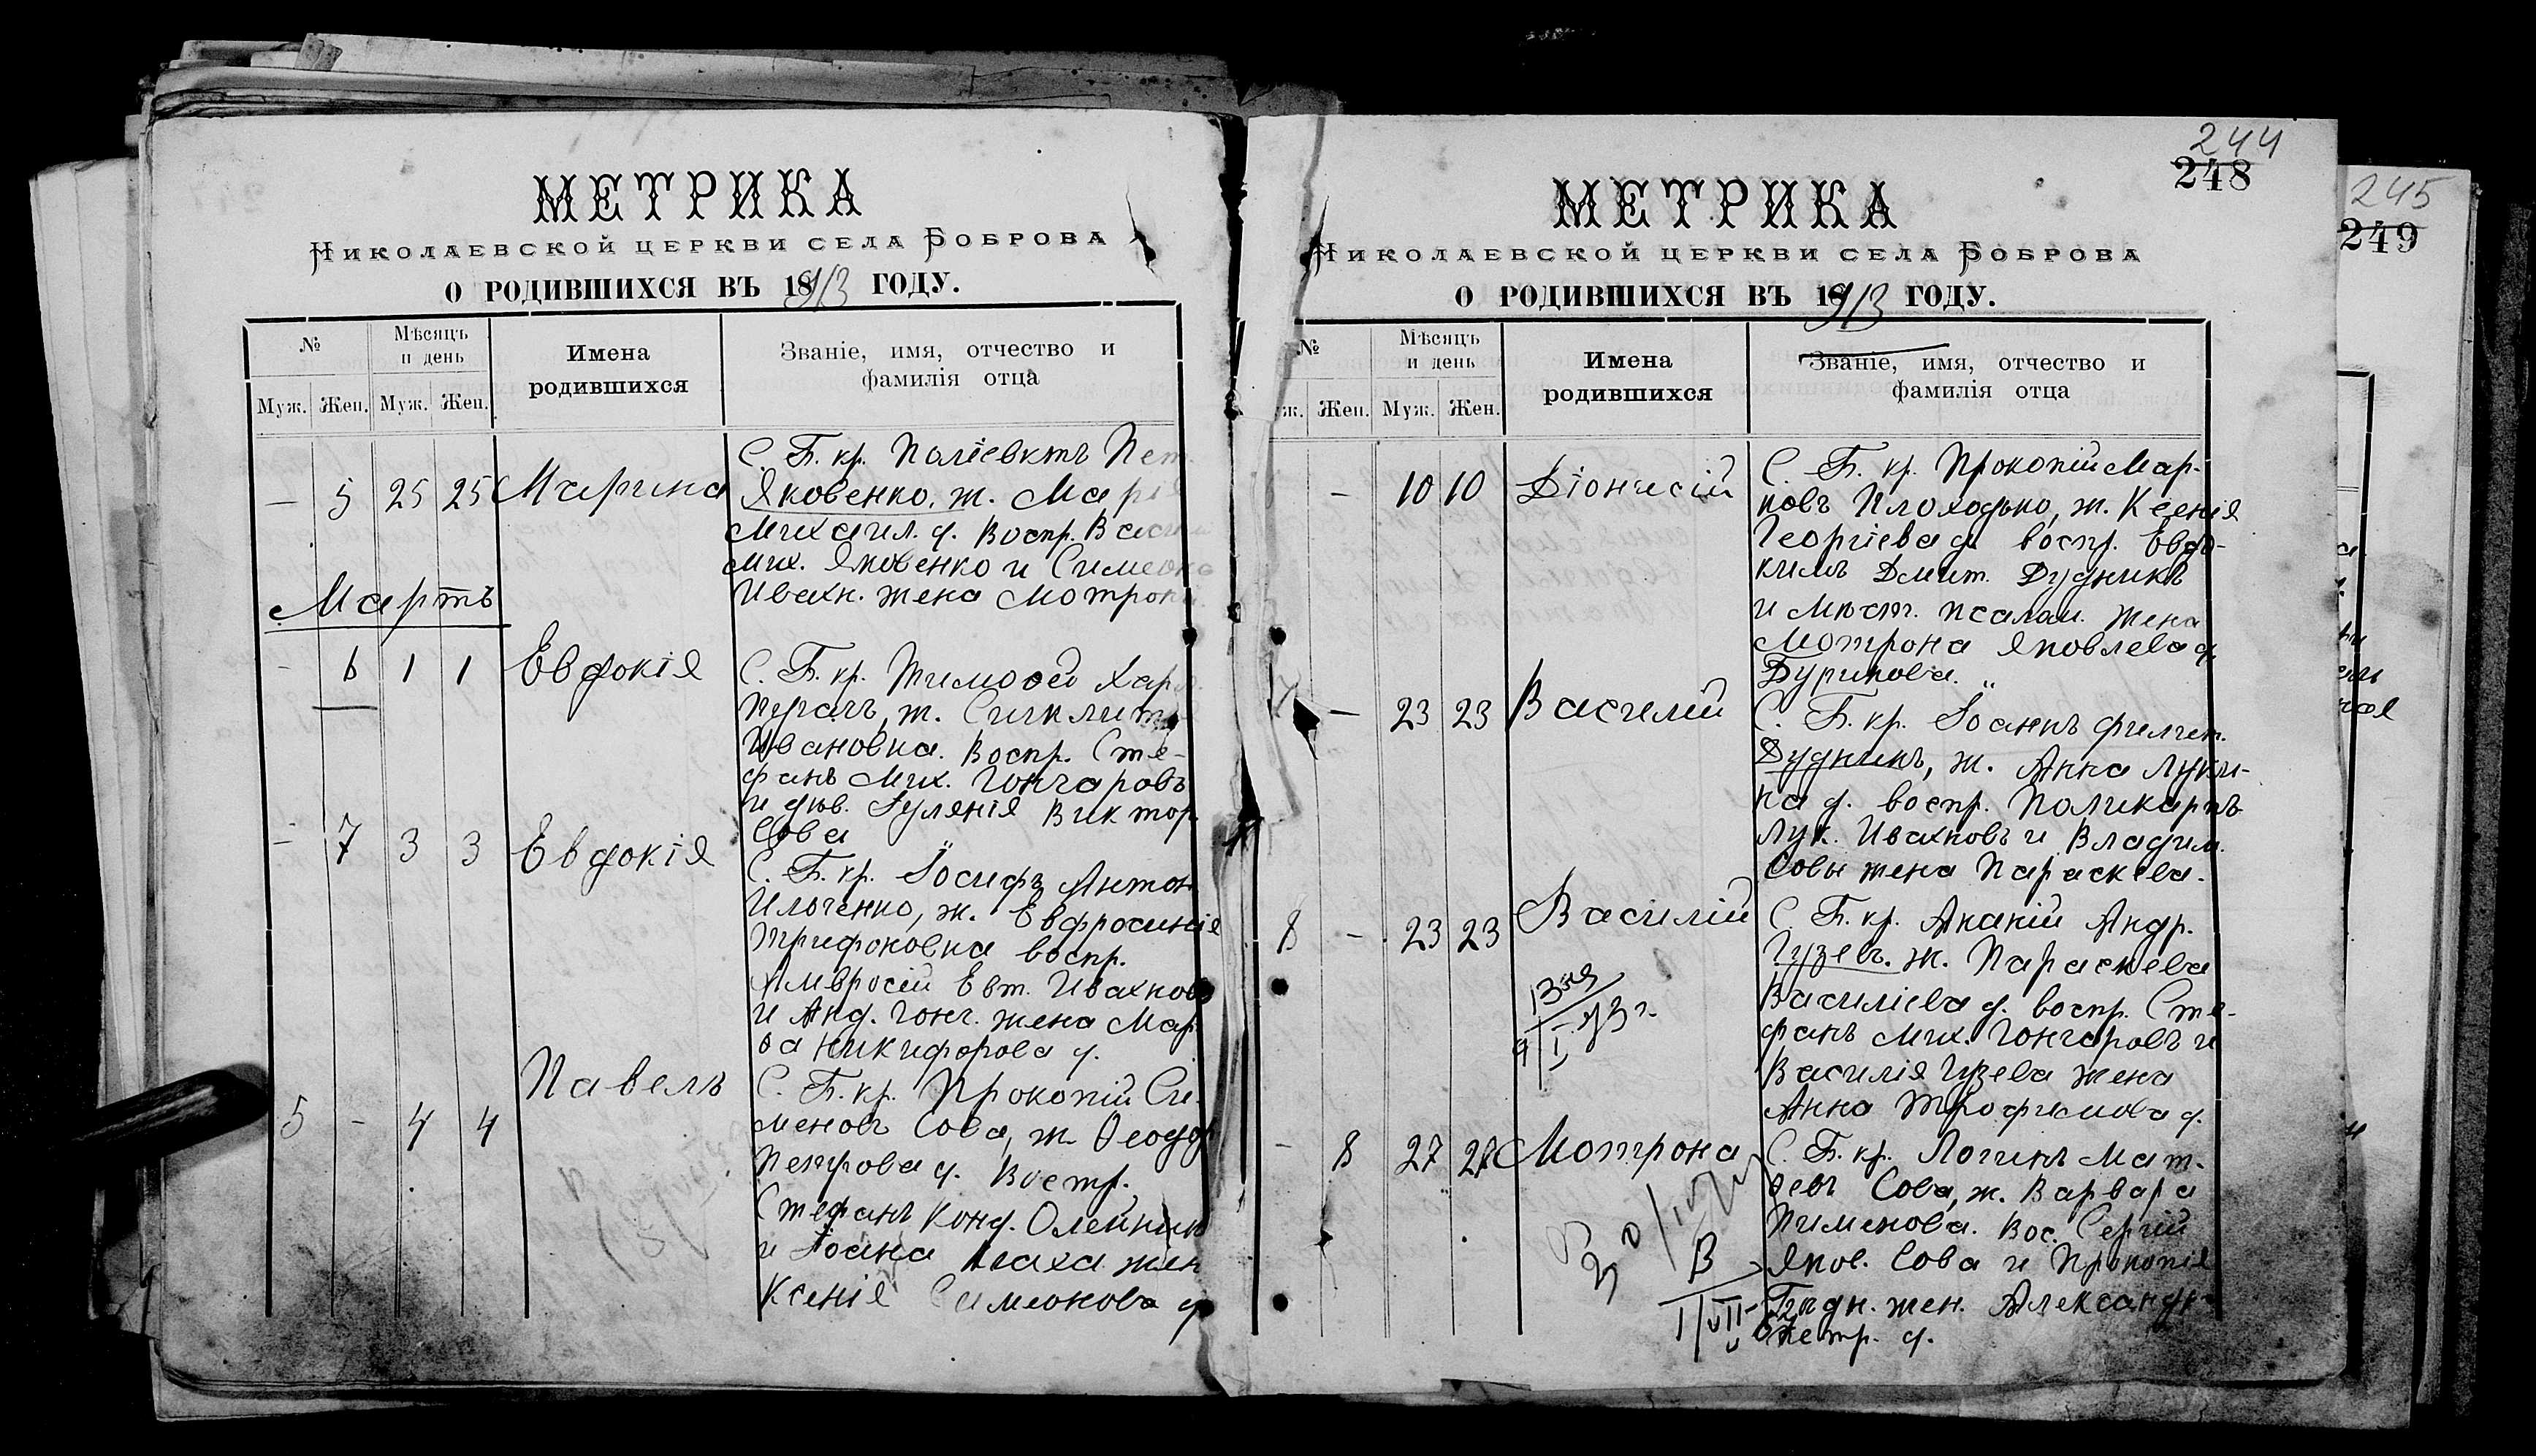 МЕТРИКА
НИКОЛАЕВСКОЙ ЦЕРКВИ СЕЛА БОБРОВА
О РОДИВШИХСЯ ВЪ 1913 ГОДУ.
№ Мѣсяцъ и день Имена родившихся Званіе, имя, отчество и фамилія отца
Муж. Жен. Муж. Жен.
С. Б. кр. Поліевктъ Пет.
— 5 25 25 Марина Яковенко, ж. Марія
Михаил. д. Воспр.
Мих. Яковенко и Симеона
Ивахн. жена Мотрона
Мартъ
- 6 1 1 Евдокія С. Б. кр. Тимоѳей Хар.
ж.
Ивановна. Воспр. Сте-
фанъ Мих. Гончаровъ
и дѣв. Іулянія Виктор.
Сова
- 7 3 3 Евдокія С. Б. кр. Іосифъ Антон
Ильченко, ж. Евфросинія
Трифоновна воспр.
Амвросій Евт. Ивахновъ
и Анд. Гонч. жена Мар-
ѳа Никифорова д.
Павелъ С. Б. кр. Прокопій Си-
5 - 4 4 меновъ Сова, ж. Ѳеодор
Петрова д. Воспр.
Стефанъ Конд. Олейник
и Іоанна жен
Ксенія Симеонова д
244
248
МЕТРИКА
НИКОЛАЕВСКОЙ ЦЕРКВИ СЕЛА БОБРОВА
О РОДИВШИХСЯ ВЪ 1913 ГОДУ.
№ Мѣсяцъ и день Имена родившихся Званіе, имя, отчество и фамилія отца
уж. Жен. Муж. Жен.
С. Б. кр. Прокопій Мар-
— 10 10 Діонисій ковъ Плоходько, ж. Ксенія
Георгіева д. воспр. Евдо-
кимъ Дмит. Дудникъ
и псалом. жена
Мотрона Яковлева д.
7 — 23 23 Василій С. Б. кр. Іоаннъ Филип.
Дудникъ, ж. Анна Луки-
на д. воспр. Поликарпъ
Лук. Ивахновъ и Владим.
Совы жена Параскева.
Василій С. Б. кр. Акакій Андр.
8 - 23 23 Гузевъ. ж. Параскева
Василіева д. воспр. Сте-
фанъ Мих. Гончаровъ и
Василія Гузева жена
Анна Трофимова д.
- 8 27 28 Мотрона С. Б. кр. Логинъ Мат-
ѳевъ Сова, ж. Варвара
Пименова. Вос. Сергій
Яков. Сова и Прокопія
жен. Александр
Петр. д.
245
249